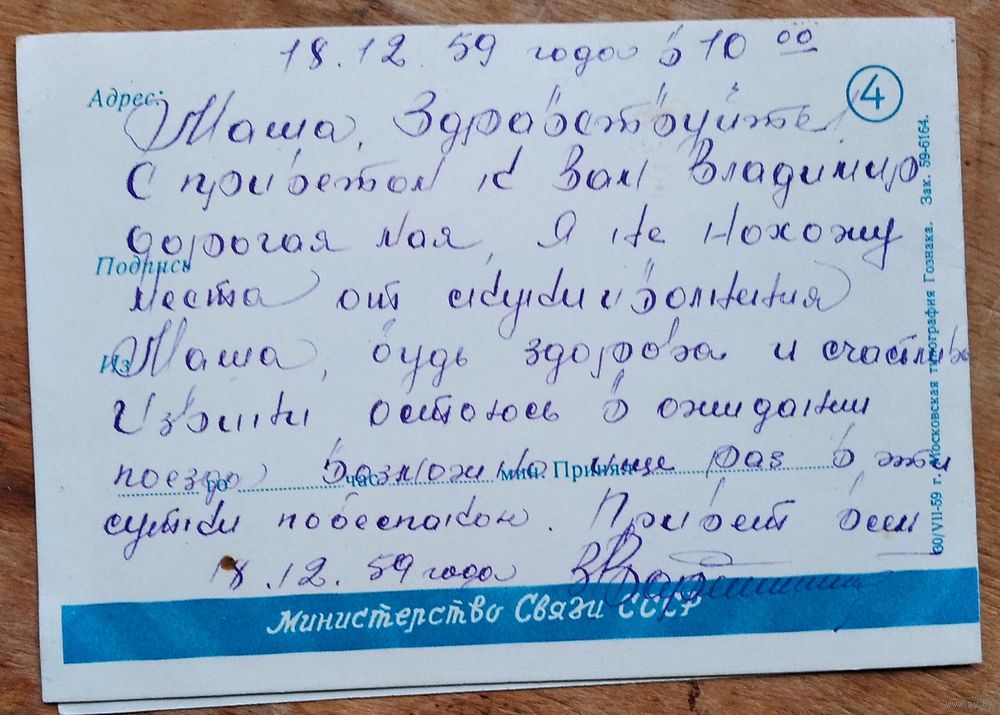 18.12.59 года в 10 00
Адрес:
4
Маша, Здравствуйте!
С приветом к Вам Владимир
дорогая мая, Я не нохожу
Подпись
места от скуки и волнения
Из
Маша, будь здорова и счастлива
Извини остаюсь в ожидании
поезда Возможно ище раз в эти
го час. мин. Принял
сутки побеспакою. Привет всем
18.12.59 года
Министерство Связи СССР
60/VII-59 г. Московская типография Гознака. Зак. 59-6164.
www.ay.by